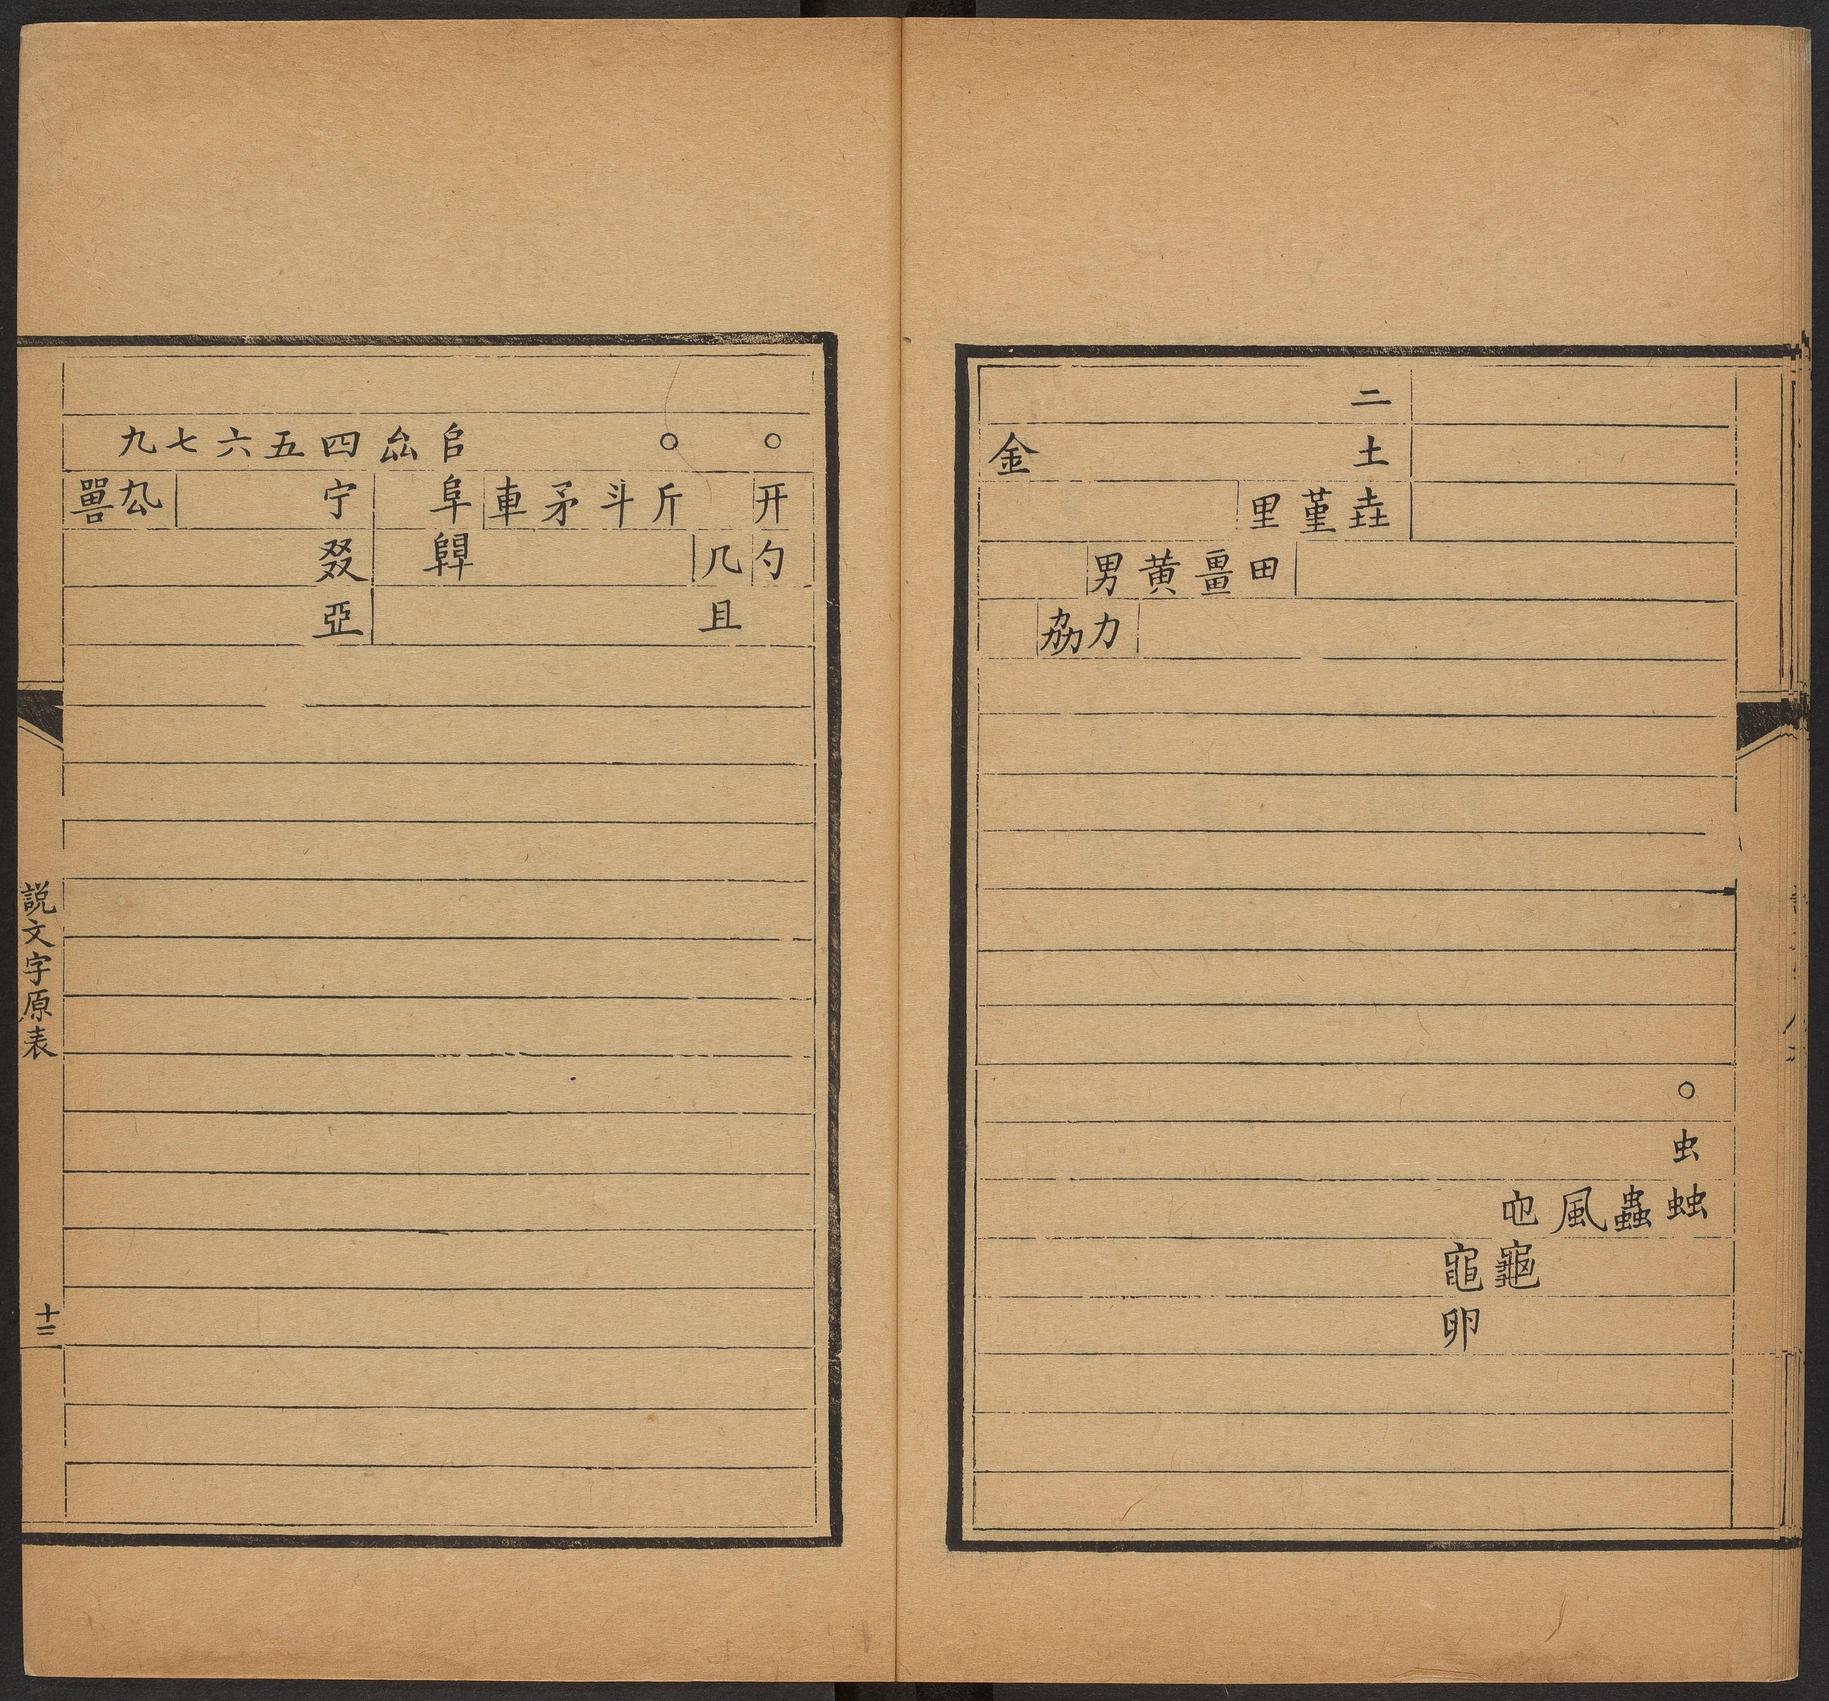 二
土 金
垚 堇 里
田 畕 黄 男
力 劦
○
虫
䖵 蟲 風 它
龜 黽
卵
○ ○ 𠂤 厽 四 五 六 七 九
幵 斤 斗 矛 車 𨸏 宁 禸 嘼
勺 几 𨺅 叕
且 亞
説文字原表
十三